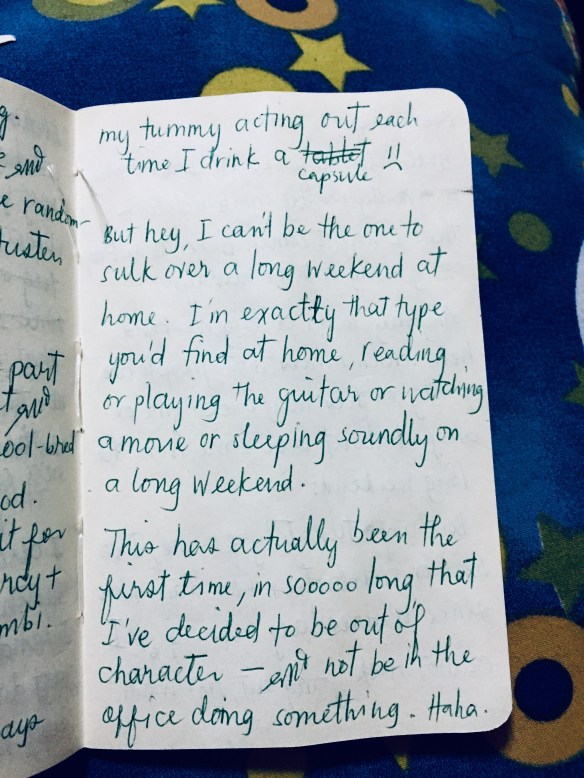 g.
end
e random
Austen
part
and
ool-bred
od.
it for
rcy +
mbi.
ays
my tummy acting out each
time I drink a tablet
capsule
But hey, I can't be the one to
sulk over a long weekend at
home. I'm exactly that type
you'd find at home, reading
or playing the guitar or watching
a movie or sleeping soundly on
a long weekend.
This has actually been the
first time, in sooooo long, that
I've decided to be out of
character — and not be in the
office doing something. Haha.